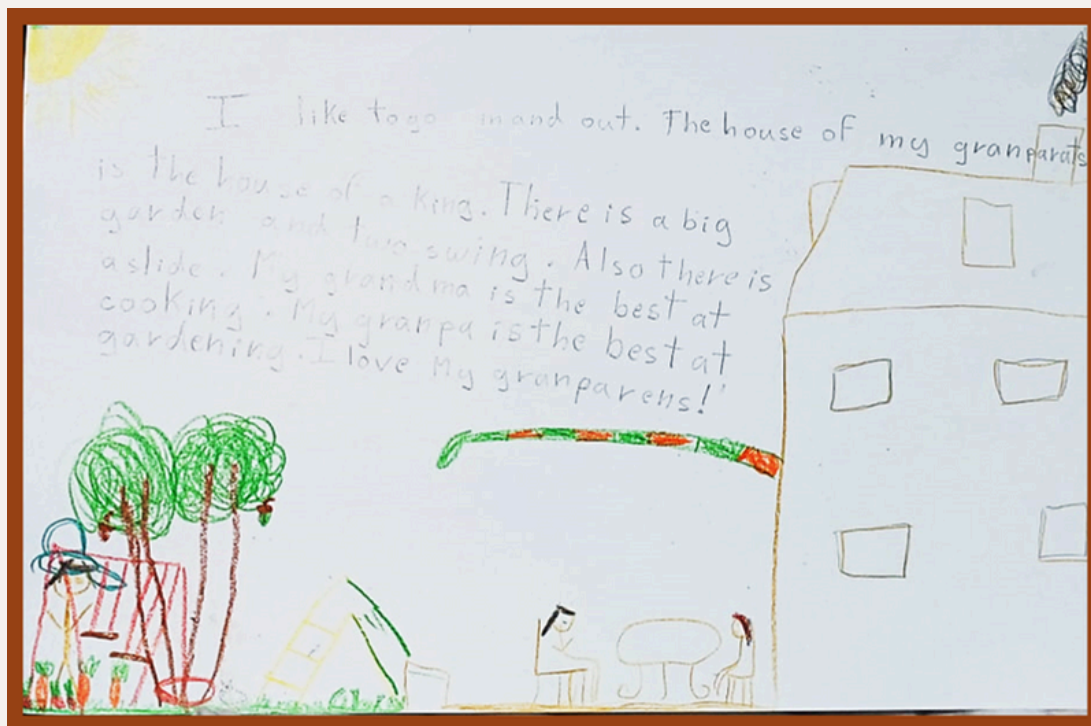 I like to go in and out. The house of my granparats
is the house of a king. There is a big
garden and two swing. Also there is
a slide. My grandma is the best at
cooking. My granpa is the best at
gardening. I love my granparens!